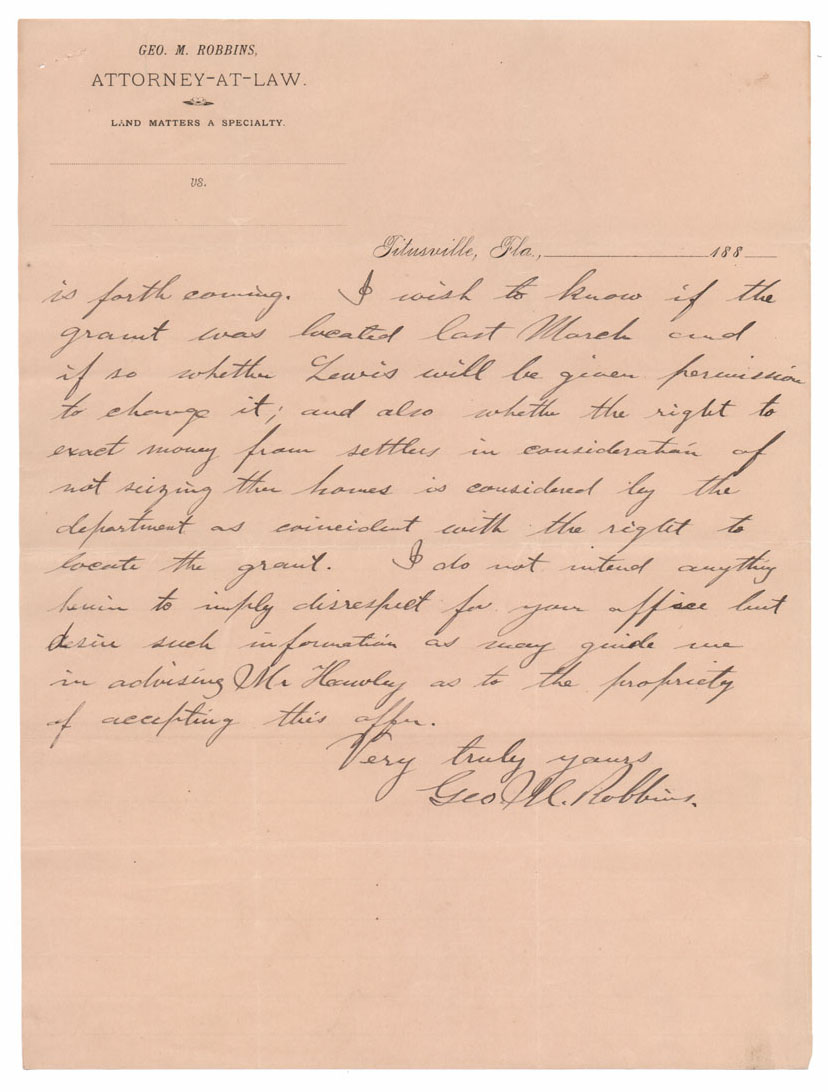 GEO. M. ROBBINS,
ATTORNEY-AT-LAW.
LAND MATTERS A SPECIALTY.
vs.
Titusville, Fla., 188
is forth coming. I wish to know if the
grant was located last March and
if so whether Lewis will be given permission
to change it; and also whether the right to
exact money from settlers in consideration of
not seizing their homes is considered by the
department as coincident with the right to
locate the grant. I do not intend anything
herein to imply disrespect for your office but
desire such information as may guide me
in advising Mr Hawley as to the propriety
of accepting this offer.
Very truly yours
Geo M. Robbins.